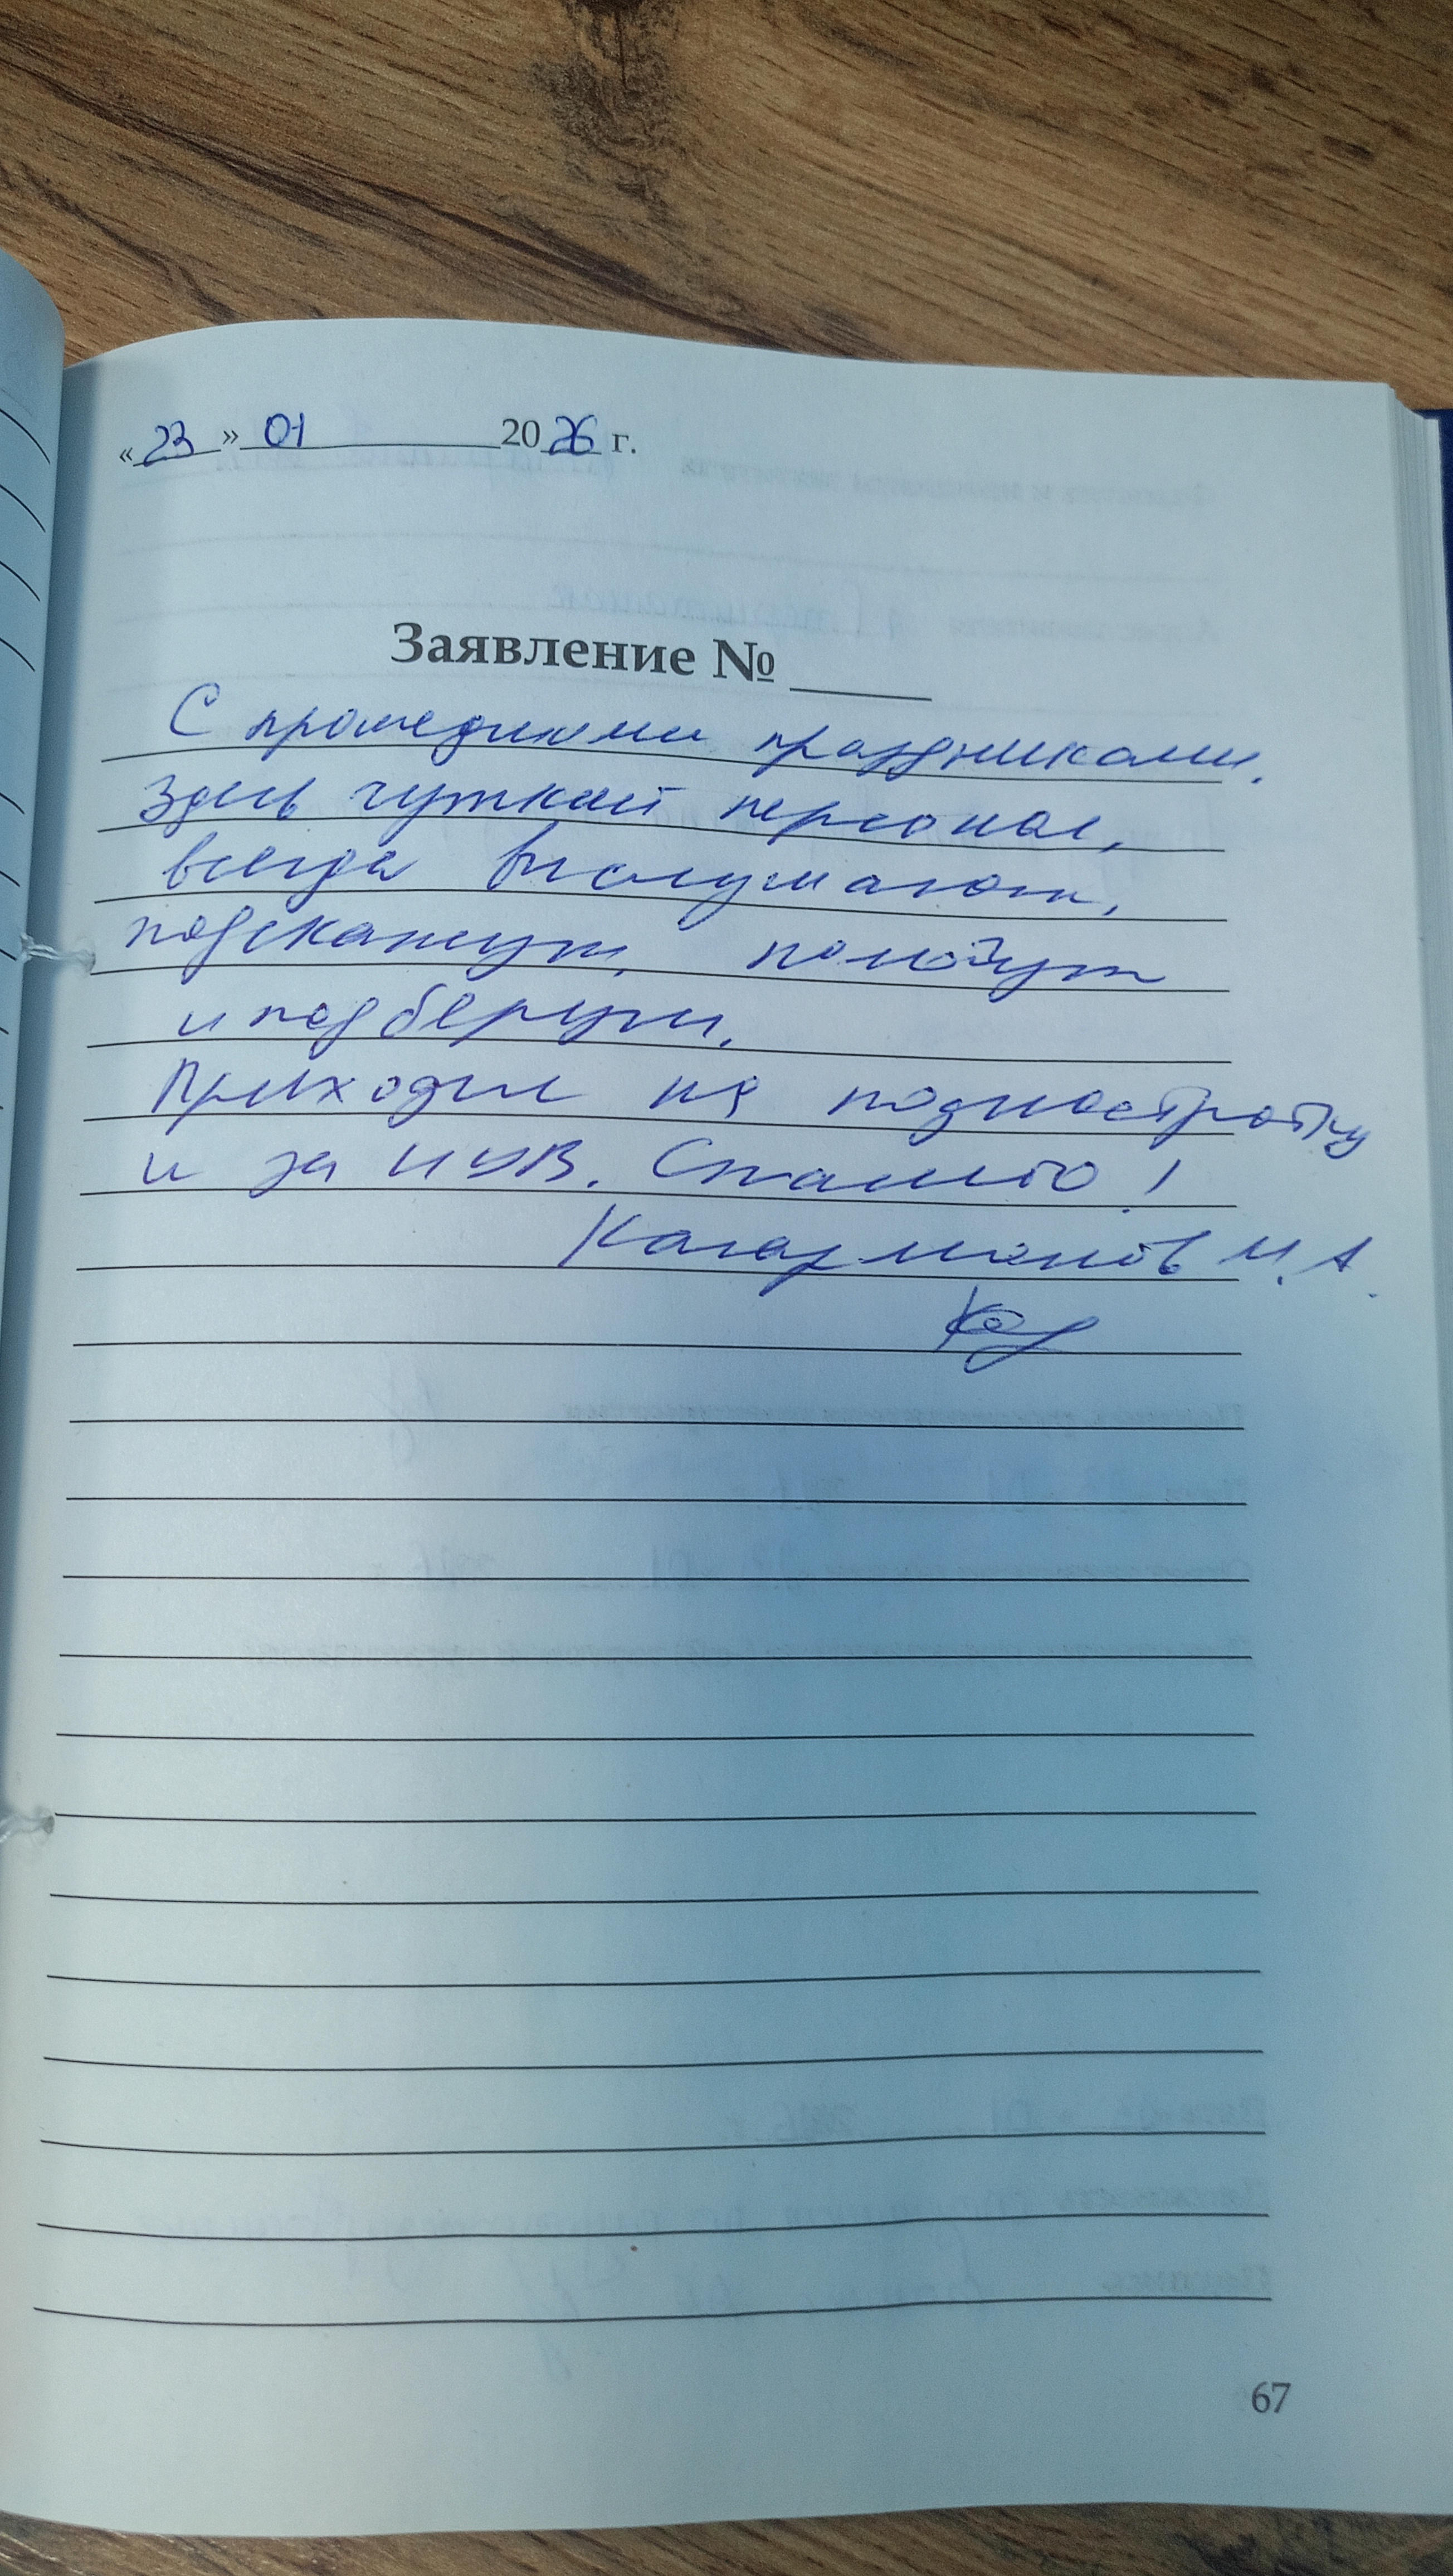 «23» 01 2026 г.
Заявление №
С прошедшими праздниками.
Здесь чуткий персонал,
всегда выслушают,
подскажут, помогут
и подберут.
Приходил на поднастройку
и за ИУВ. Спасибо!
Кагарманов И. А.
67